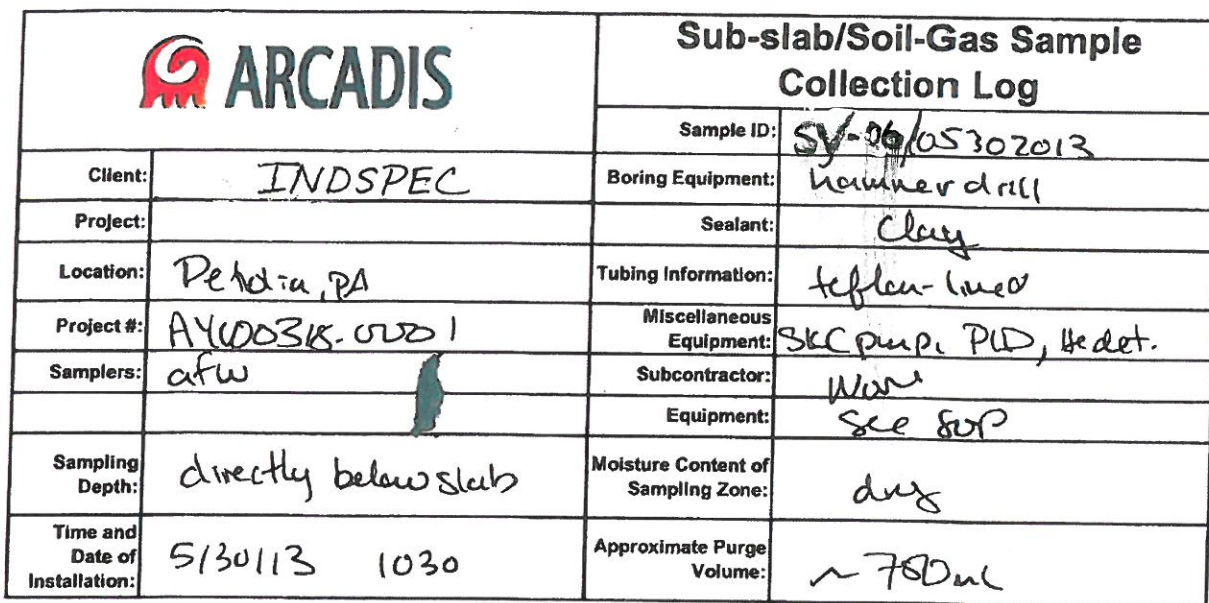 ARCADIS
Sub-slab/Soil-Gas Sample
Collection Log
Sample ID: SV-06/05302013
Client: INDSPEC
Boring Equipment: hammer drill
Project:
Sealant: Clay
Location: Petrolia, PA
Tubing Information: teflon-lined
Project #:
Miscellaneous
Equipment: SKC pump, PID, He det.
Samplers: afw
Subcontractor:
Equipment: See SOP
Sampling
Depth: directly below slab
Moisture Content of
Sampling Zone: dry
Time and
Date of
Installation: 5/30/13 1030
Approximate Purge
Volume: ~ 750 mL